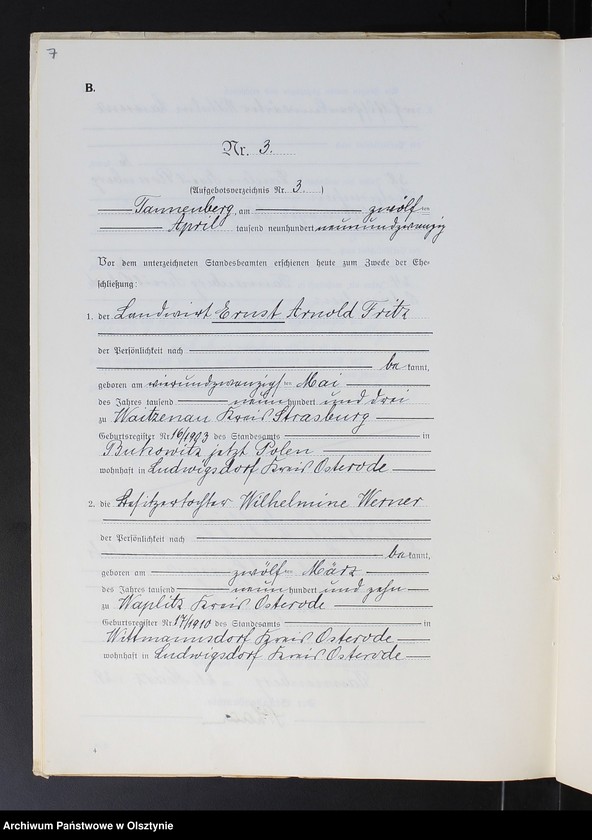 7
B.
Nr. 3.
(Aufgebotsverzeichnis Nr. 3. )
Tannenberg, am zwölften
April tausend neunhundert neunundzwanzig
Vor dem unterzeichneten Standesbeamten erschienen heute zum Zwecke der Ehe-
schließung:
1. der Landwirt Ernst Arnold Fritz
der Persönlichkeit nach
bekannt,
geboren am vierundzwanzigsten Mai
des Jahres tausend neunhundert und drei
zu Waitzenau Kreis Strasburg
Geburtsregister Nr. 16/1903 des Standesamts in
Bukowitz jetzt Polen
wohnhaft in Ludwigsdorf Kreis Osterode
2. die Besitzertochter Wilhelmine Werner
der Persönlichkeit nach
bekannt,
geboren am zwölften März
des Jahres tausend neunhundert und zehn
zu Waplitz Kreis Osterode
Geburtsregister Nr. 17/1910 des Standesamts in
Wittmannsdorf Kreis Osterode
wohnhaft in Ludwigsdorf Kreis Osterode
Archiwum Państwowe w Olsztynie